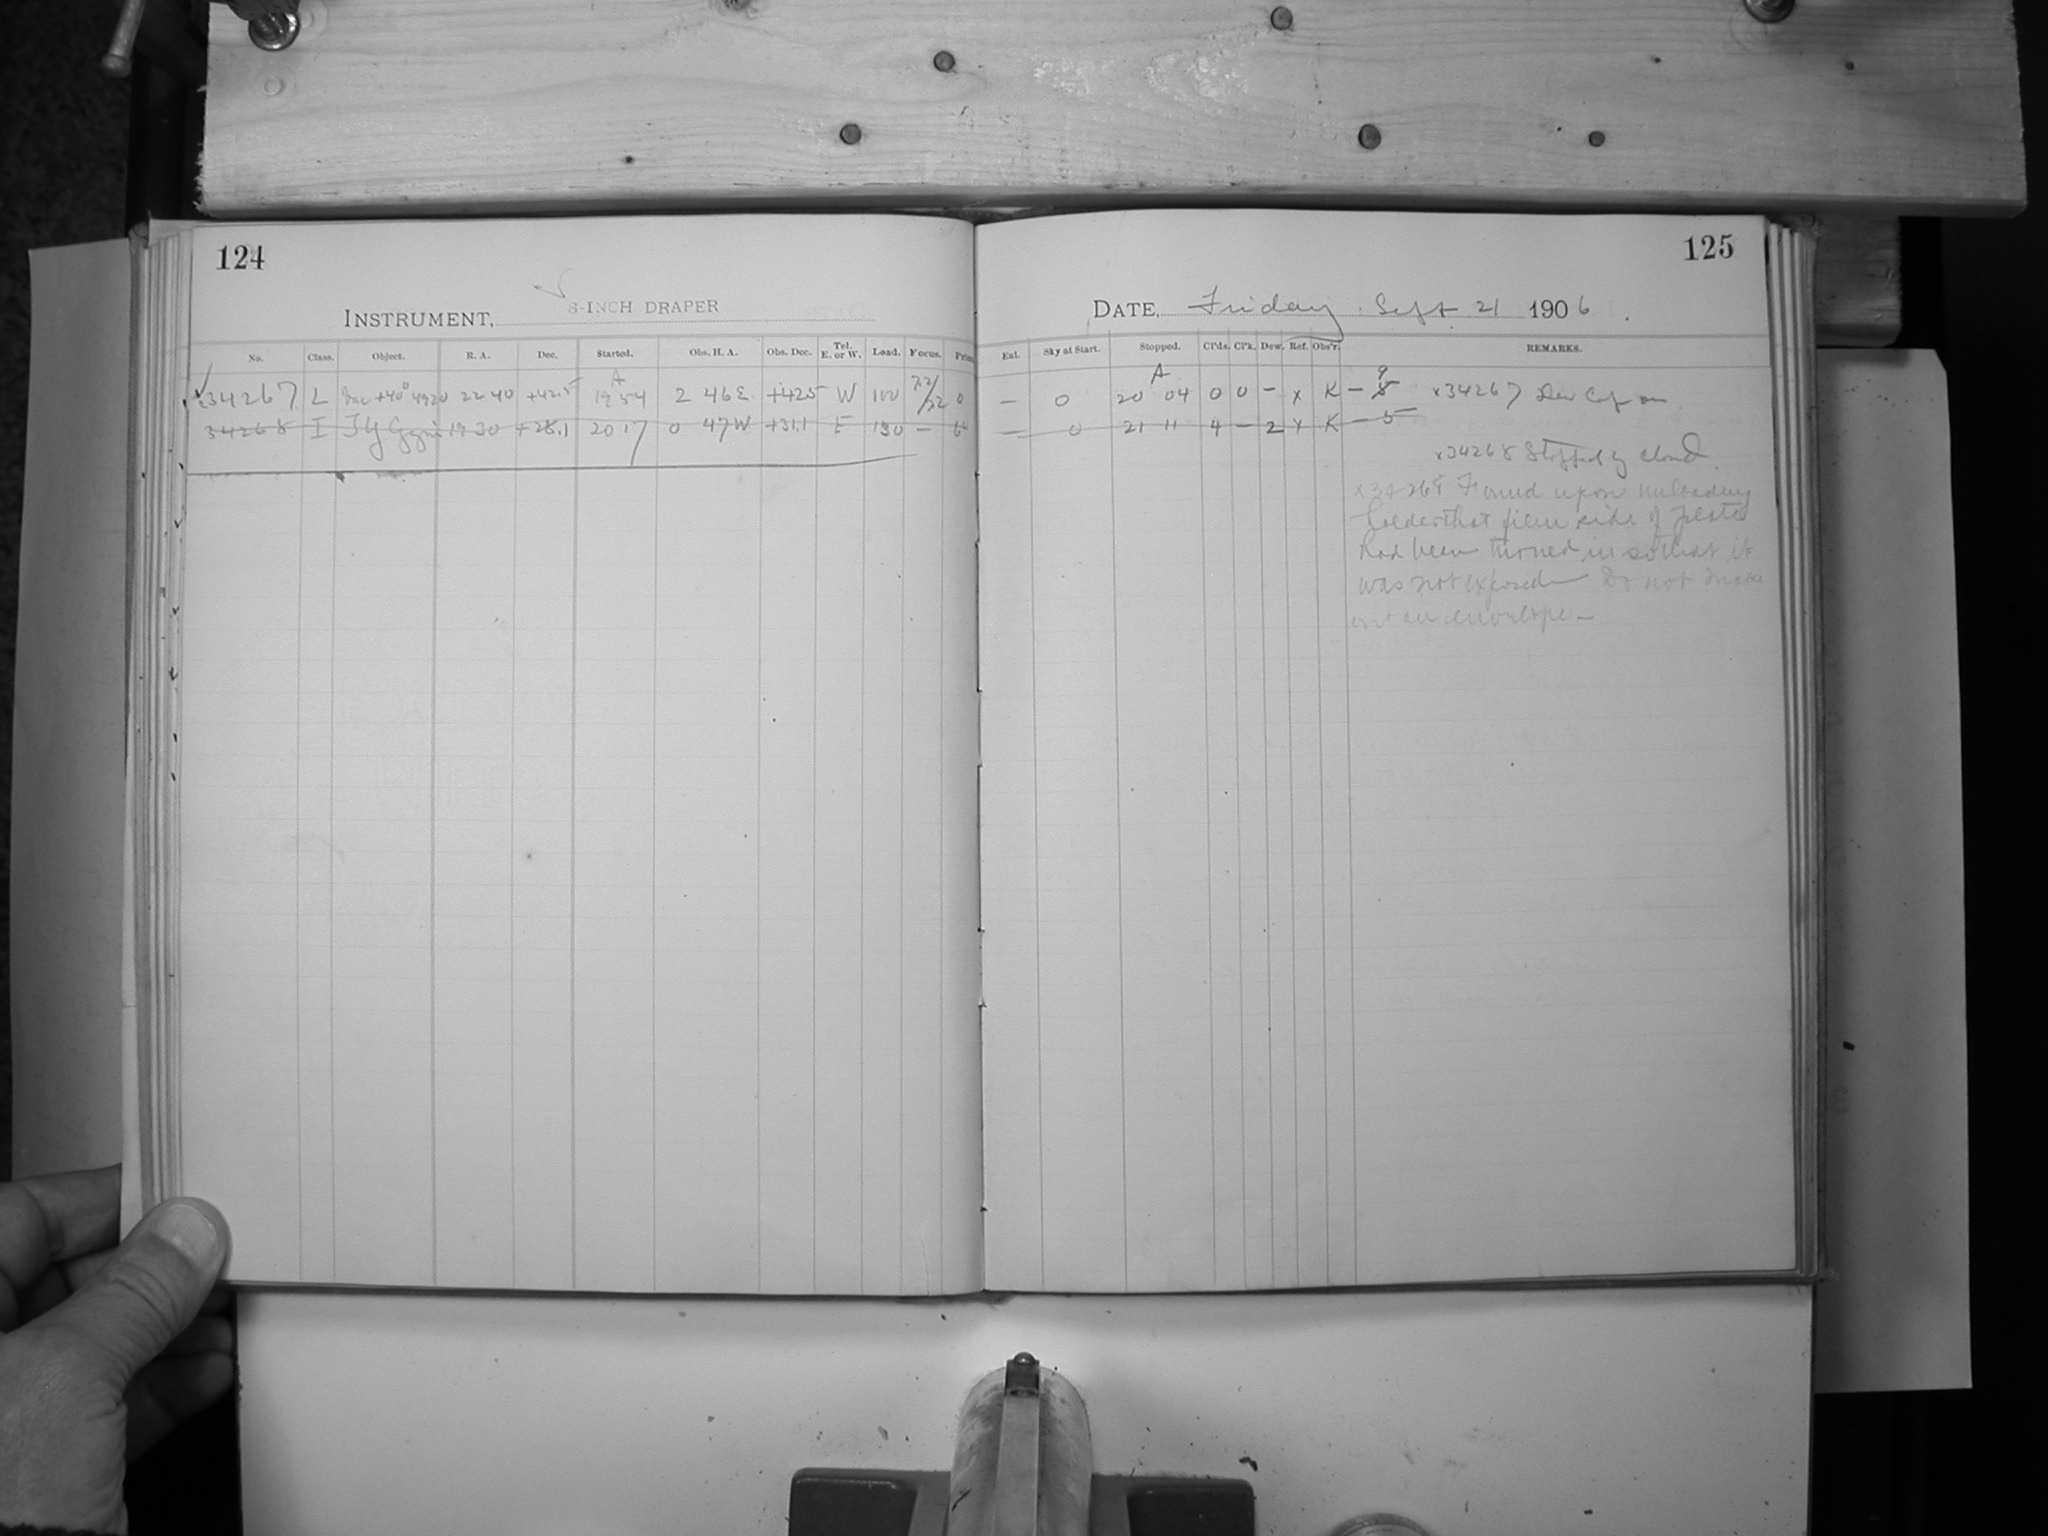 124
125
INSTRUMENT, 8-INCH DRAPER
DATE, Friday Sept 21 1906.
No. Class. Object. R. A. Dec. Started. Obs. H. A. Obs. Dec. Tel. E. or W. Load. Focus.
Sky at Start. Stopped. Cl'ds. Cl'k. Dew. Ref. Obs'r. REMARKS.
A
A
34267 L +40° 4920 22 40 +42.5 19 54 2 46E +42.5 W 100 7.2/22 0
— 0 20 04 0 0 — x K — 9 x34267 Dew Cap on
34268 I 19 30 +28.1 20 17 0 47W +31.1 E 130 —
— 0 21 11 4 — 2 x K — 5
x34268 Stopped by cloud.
x34268 Found upon unloading
holder that film side of plate
had been turned in so that it
was not exposed Do not make
out an envelope —